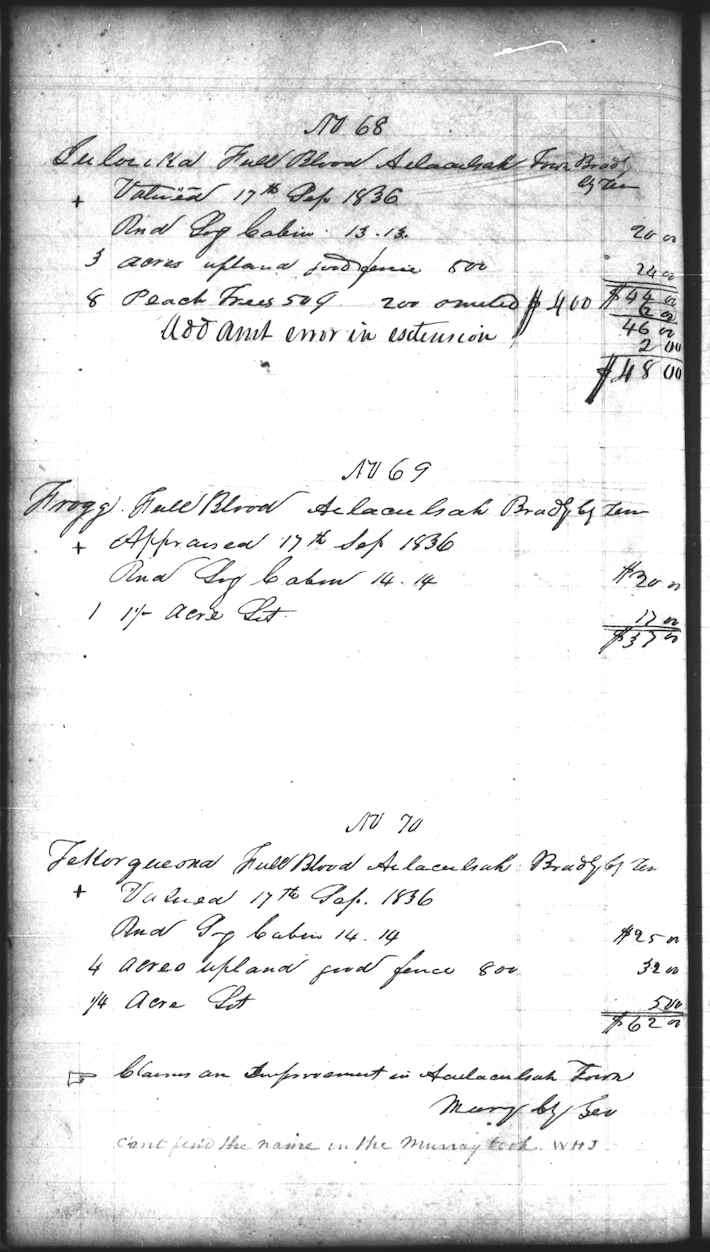 No 68
Full Blood Town Bradly
Cty Ten
+ Valued 17th Sep 1836
Rnd Log Cabin 13.13. 20 00
3 acres upland good fence 800 24 00
$44 00
8 Peach Trees 50 ¢ 200 omitted $400 2 00
46 00
Add Amt error in extension 2 00
$48 00
No 69
Frogg Full Blood Bradly Cty Ten
+ Appraised 17th Sep 1836
Rnd Log Cabin 14.14 $20 00
1 Acre Lot 17 00
$37 00
No 70
Full Blood Bradly Cty Ten
+ Valued 17th Sep. 1836
Rnd Log Cabin 14.14 $25 00
4 acres upland good fence 800 32 00
1/4 Acre Lot 5 00
$62 00
☞ Claims an Improvement in Town
Murry Cty Geo
cant find the name in the Murray book. WHJ